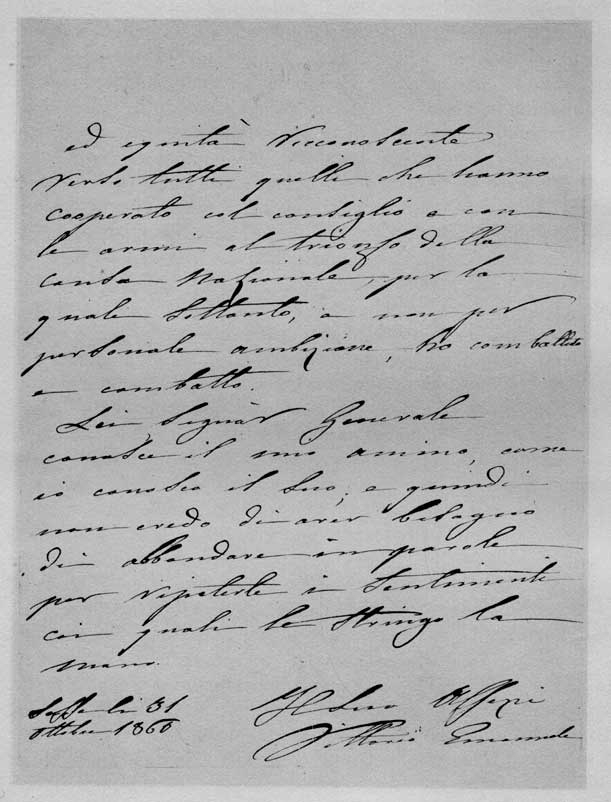 ed equità riconoscente
verso tutti quelli che hanno
cooperato col consiglio e con
le armi al trionfo della
causa Nazionale, per la
quale soltanto, e non per
personale ambizione, ho combattuto
e combatto.
Lei, Signor Generale
conosce il mio animo, come
io conosco il suo; e quindi
non credo di aver bisogno
di abbondare in parole
per ripeterle i sentimenti
coi quali le stringo la
mano.
li 31
ottobre 1860
Il suo Affezi
Vittorio Emanuele